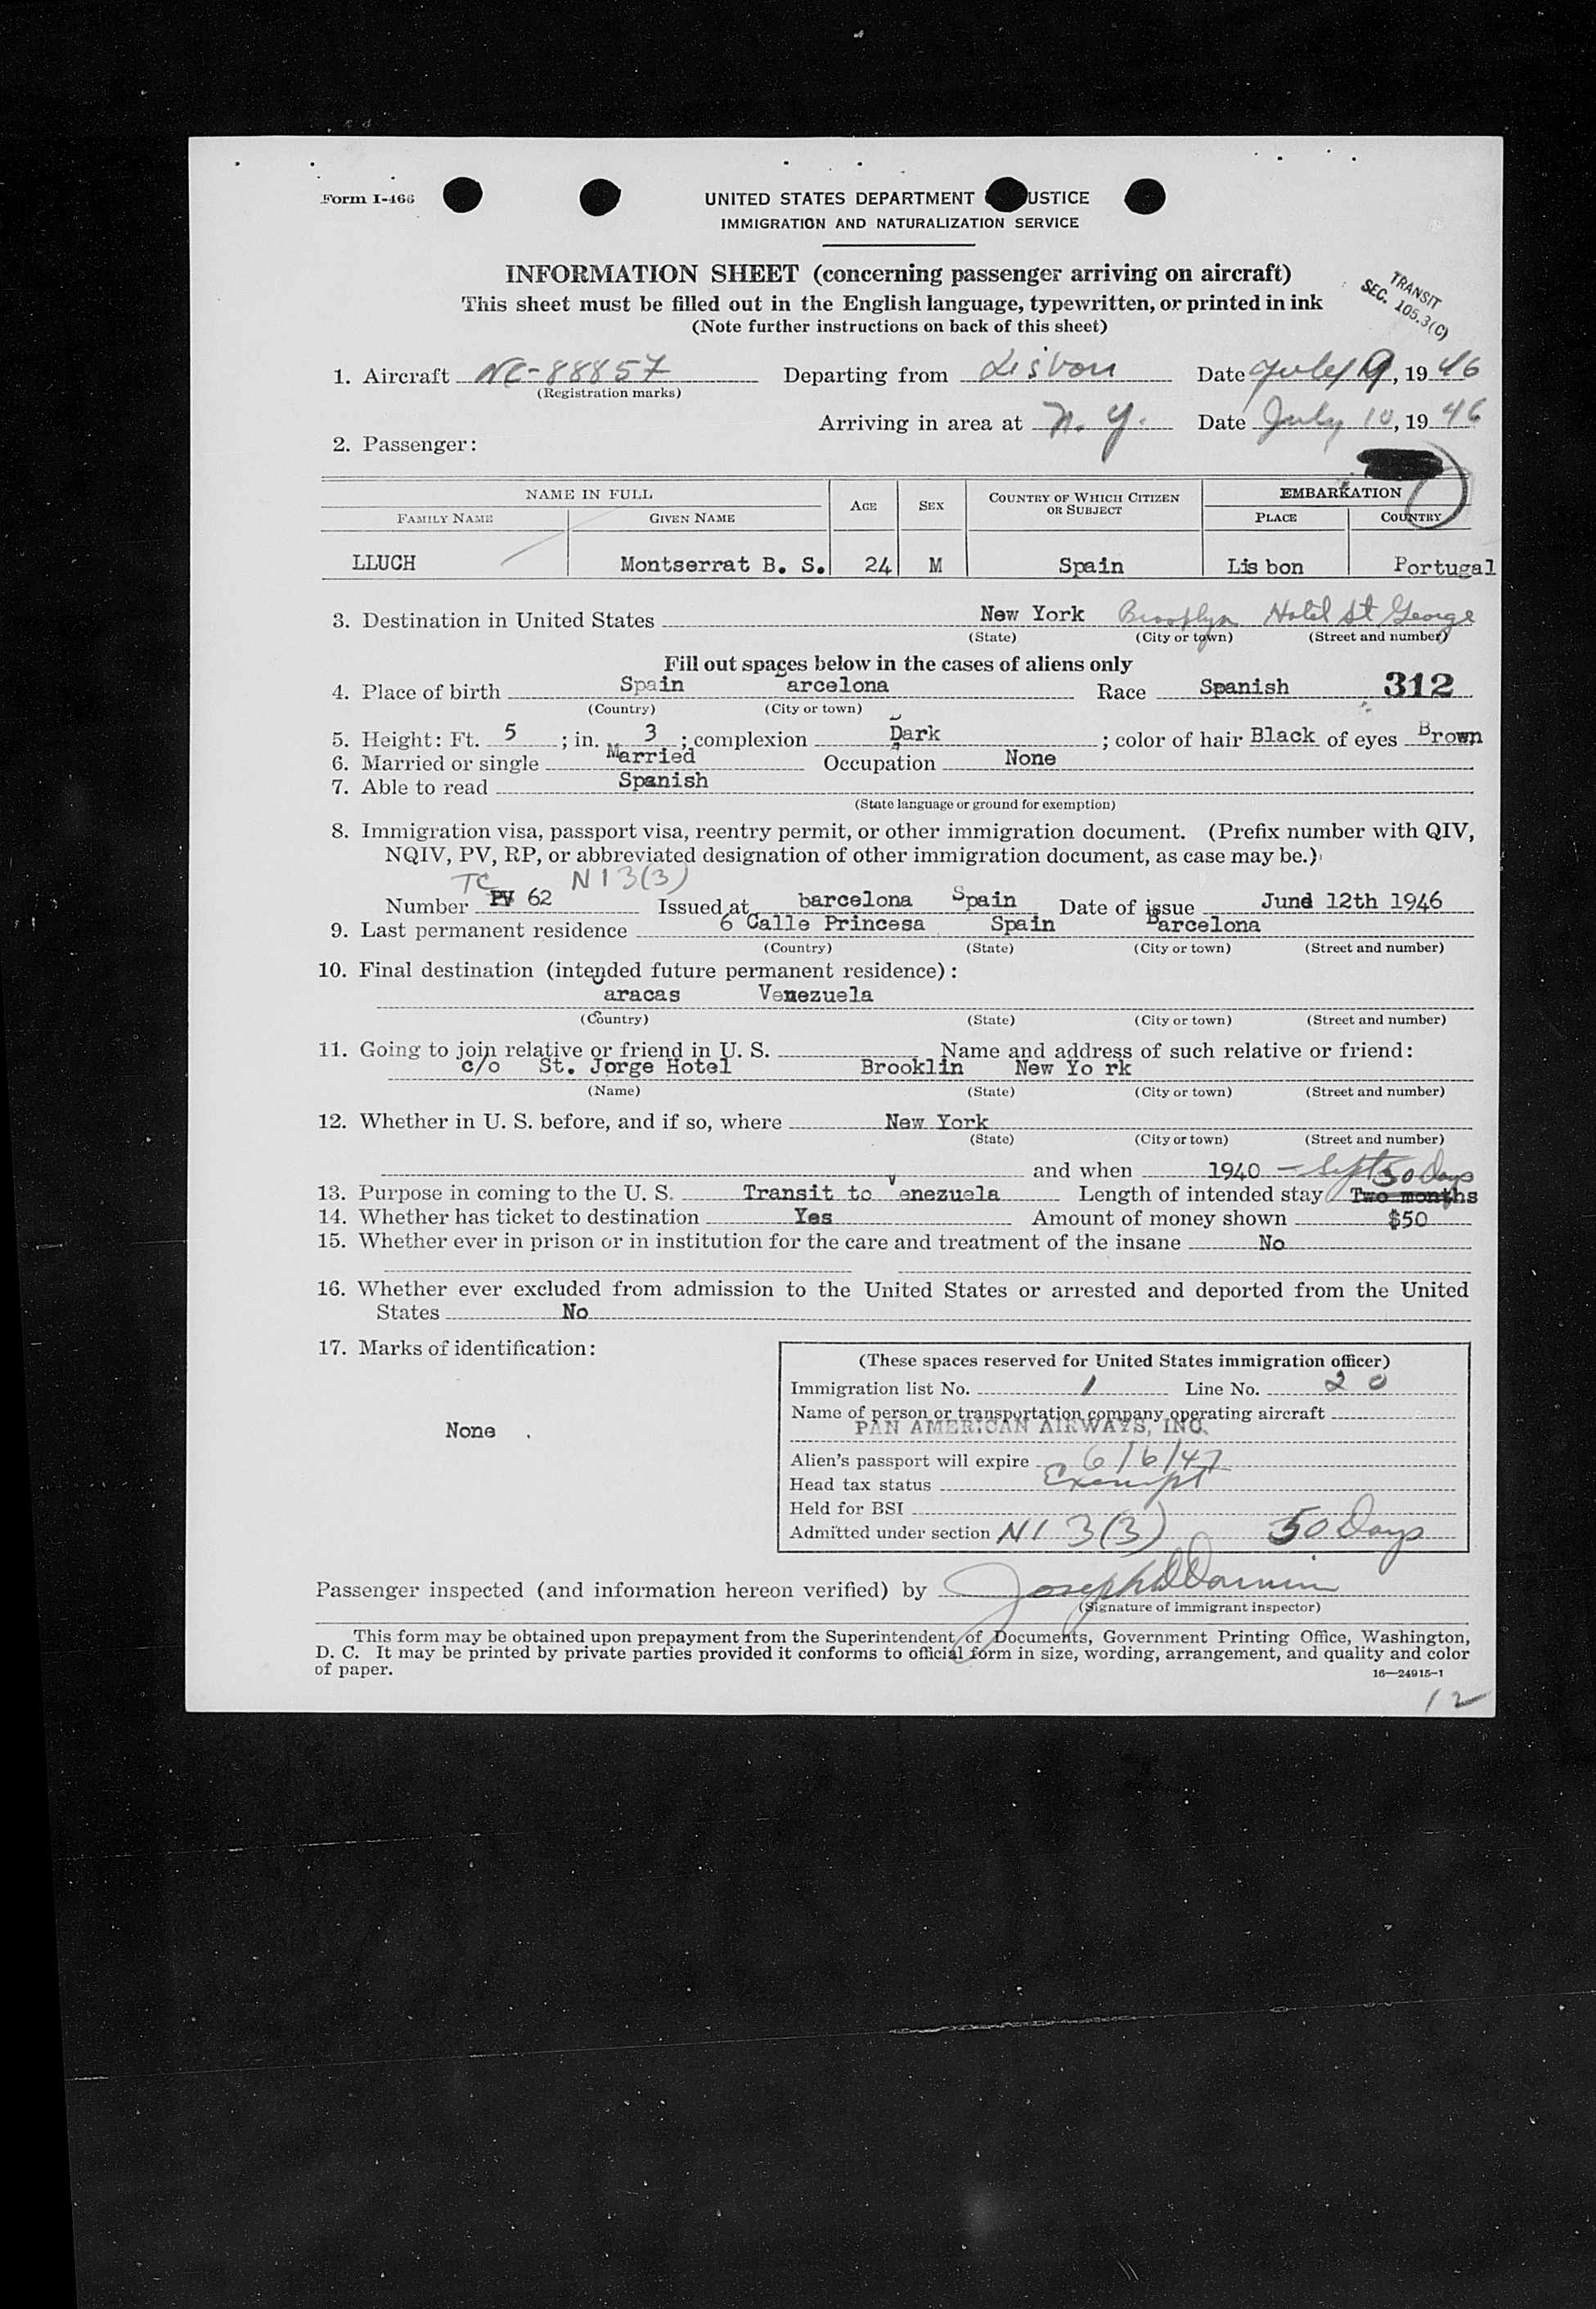 Form I-466
UNITED STATES DEPARTMENT USTICE
IMMIGRATION AND NATURALIZATION SERVICE
INFORMATION SHEET (concerning passenger arriving on aircraft)
This sheet must be filled out in the English language, typewritten, or printed in ink
(Note further instructions on back of this sheet)
TRANSIT
SEC. 105.3(C)
1. Aircraft NC-88857 Departing from Lisbon Date July 9, 1946
(Registration marks)
Arriving in area at N. Y. Date July 10, 1946
2. Passenger:
NAME IN FULL AGE SEX COUNTRY OF WHICH CITIZEN OR SUBJECT EMBARKATION
FAMILY NAME GIVEN NAME PLACE COUNTRY
LLUCH Montserrat B. S. 24 M Spain Lis bon Portugal
3. Destination in United States New York Brooklyn Hotel St George
(State) (City or town) (Street and number)
Fill out spaces below in the cases of aliens only
4. Place of birth Spain arcelona Race Spanish 312
(Country) (City or town)
5. Height: Ft. 5 ; in. 3 ; complexion Dark ; color of hair Black of eyes Brown
6. Married or single Married Occupation None
7. Able to read Spanish
(State language or ground for exemption)
8. Immigration visa, passport visa, reentry permit, or other immigration document. (Prefix number with QIV,
NQIV, PV, RP, or abbreviated designation of other immigration document, as case may be.)
TC N I 3(3)
Number PV 62 Issued at barcelona Spain Date of issue June 12th 1946
9. Last permanent residence 6 Calle Princesa Spain Barcelona
(Country) (State) (City or town) (Street and number)
10. Final destination (intended future permanent residence):
Caracas Venezuela
(Country) (State) (City or town) (Street and number)
11. Going to join relative or friend in U. S. Name and address of such relative or friend:
c/o St. Jorge Hotel Brooklin New Yo rk
(Name) (State) (City or town) (Street and number)
12. Whether in U. S. before, and if so, where New York
(State) (City or town) (Street and number)
and when 1940 - Sept
50 Days
13. Purpose in coming to the U. S. Transit to Venezuela Length of intended stay Two months
14. Whether has ticket to destination Yes Amount of money shown $50
15. Whether ever in prison or in institution for the care and treatment of the insane No
16. Whether ever excluded from admission to the United States or arrested and deported from the United
States No
17. Marks of identification:
None .
(These spaces reserved for United States immigration officer)
Immigration list No. 1 Line No. 20
Name of person or transportation company operating aircraft
PAN AMERICAN AIRWAYS, INC.
Alien's passport will expire 6/6/47
Head tax status Exempt
Held for BSI
Admitted under section N I 3(3) 50 Days
Passenger inspected (and information hereon verified) by Joseph
(Signature of immigrant inspector)
This form may be obtained upon prepayment from the Superintendent of Documents, Government Printing Office, Washington,
D. C. It may be printed by private parties provided it conforms to official form in size, wording, arrangement, and quality and color
of paper.
16—24915-1
12